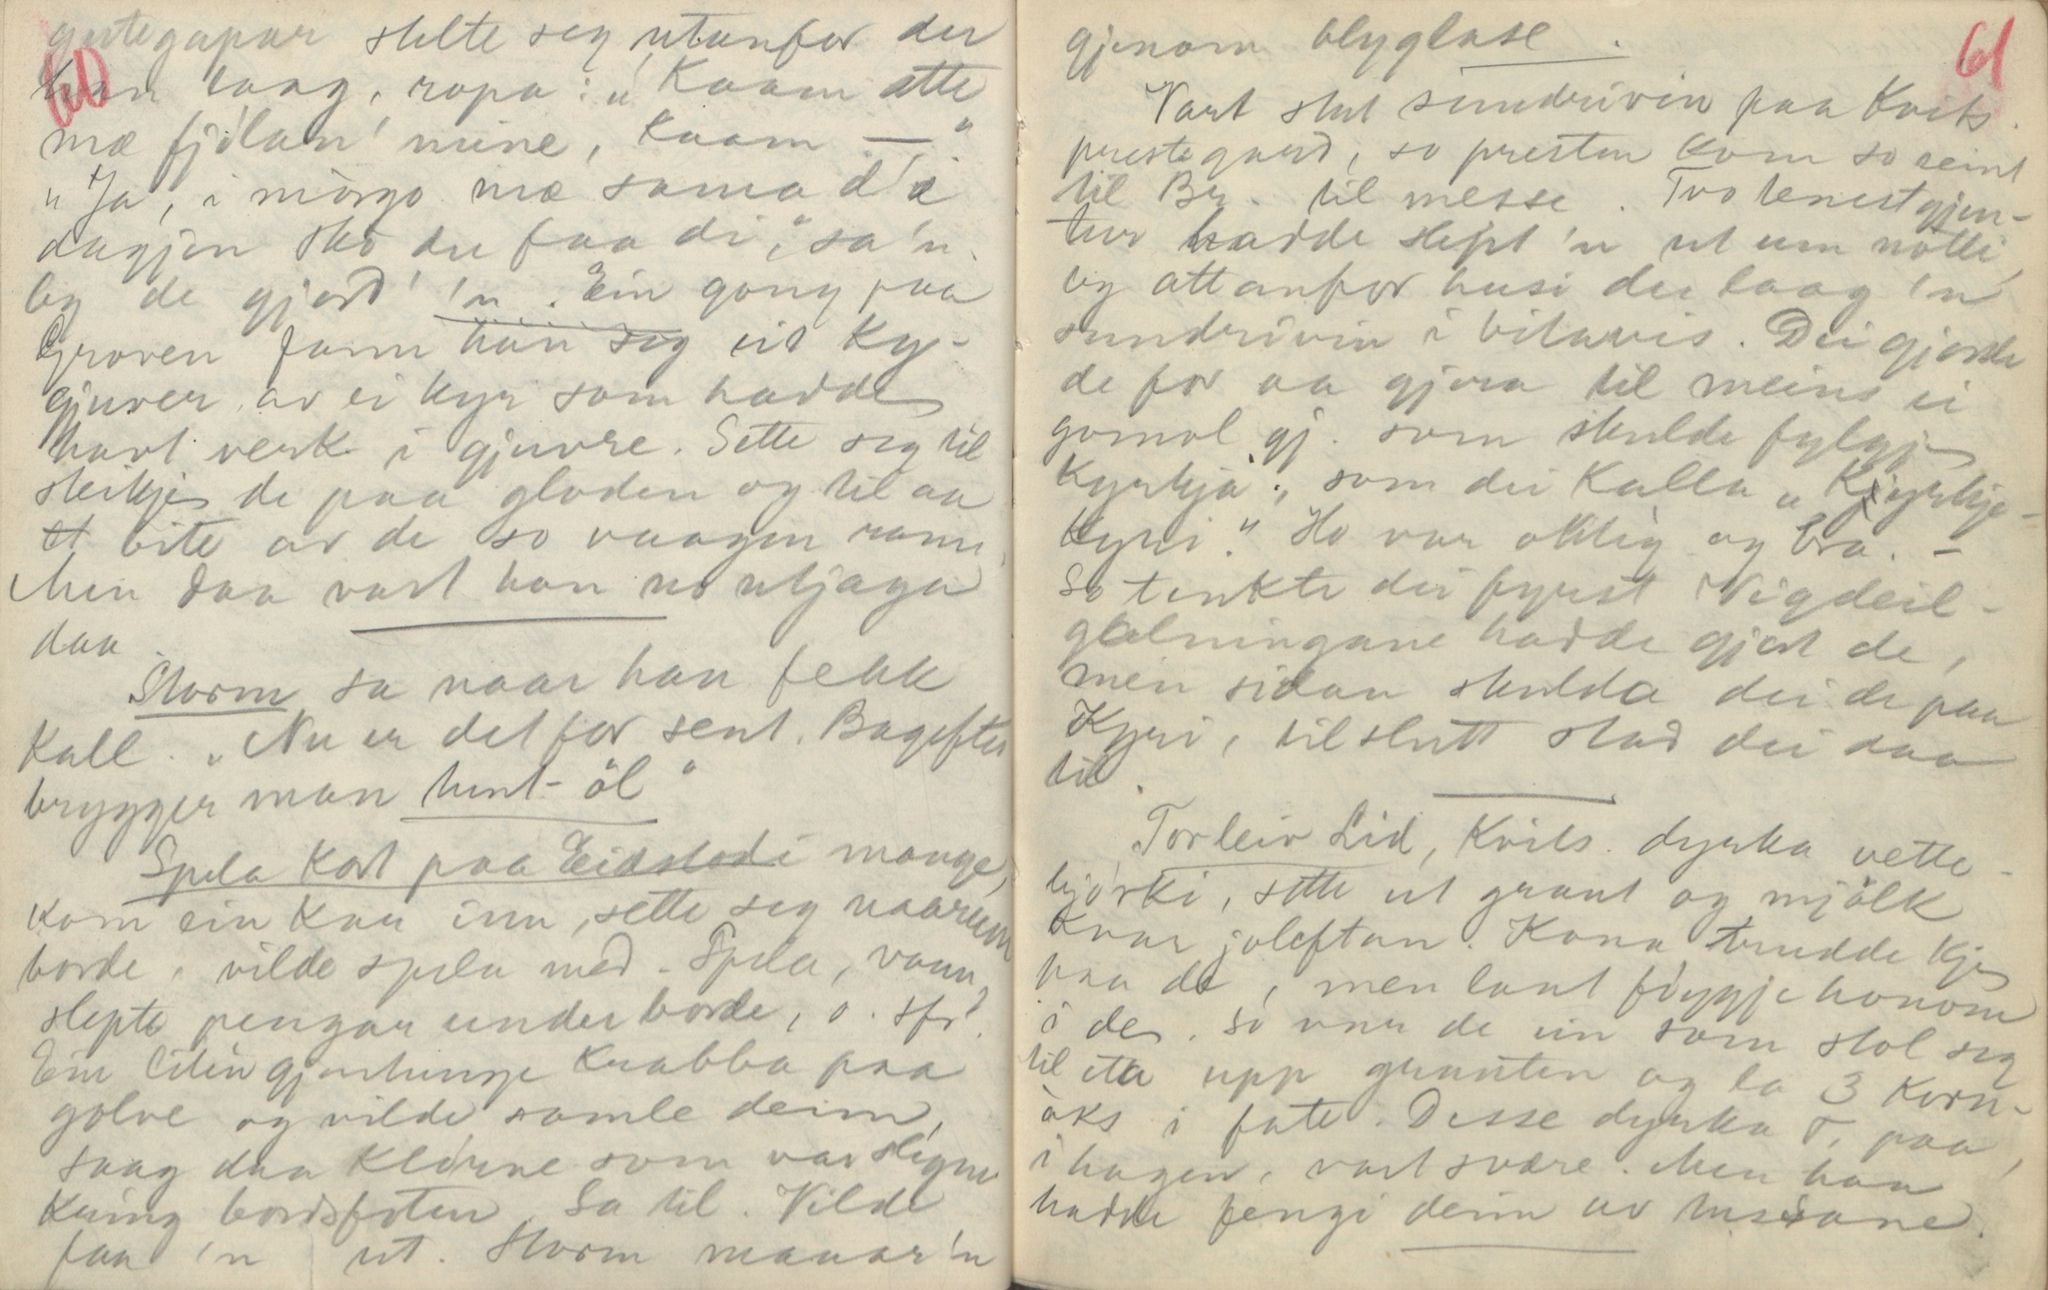 60
gutegapar stelte seg utanfor der
han laag, ropa: "Kaam atte
mæ fjølan' mine, kaam —"
"Ja, i mørgo mæ sama d'æ
dagjen sko du faa di", sa 'n.
Og de gjord' 'n. Ein gong paa
Groven fann han seg eit ky-
gjuver, av ei kyr som hadde
havt verk i gjuvre. Sette seg til
steikje de paa gloden og til aa
bite av de so vaagen rann,
Men daa vart han no utjaga
daa.
Storm sa naar han fekk
Kall. "Nu er det for sent. Bagefter
brygger man tunt-öl"
Spela kort paa Eidstod i mange,
kom ein kar inn, sette seg naarum
borde, vilde spela med. Spela, vann,
slepte pengar under borde, o. sfr.
Ein liten gjentunge krabba paa
golve og vilde samle deim,
saag daa klørne som var slegne
kring bordsfoten. Sa til. Vilde
faa 'n ut. Storm manar 'n
61
gjenom blyglase.
Vart slut sundrivin paa Kvits.
prestegard, so presten kom so seint
til Br. til messe. Tvo tenestgjen-
tur hadde slept 'n ut um notti,
og attanfor husi der laag 'n
sundrivin i bitavis. Dei gjorde
de for aa gjera til meins ei
gomol gj. som skulde fylgje
kyrkja, som dei kalla "Kjyrkje-
kyri." Ho var oklig og bra. —
So tenkte dei fyrst Vigdeil-
gledningane hadde gjort de,
men sidan skulda dei de paa
Kyri, til slutt stod dei daa
til.
Torleiv Lid, Kvits. dyrka vette-
bjørki, sette ut graut og mjölk
kvar joleftan. Kona trudde kje
paa de, men laut føyggje honom
i de. So var de ein som stol seg
til eta upp grauten og la 3 korn-
aks i fate. Desse dyrka T. paa,
i hagen, vart svære. Men han
hadde fengi deim av tussane.